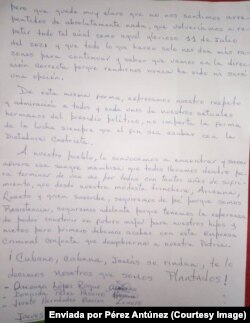 por que quede muy claro que no nos sentimos arre-
pentidos de absolutamente nada, que volveríamos a re-
petir todo tal cual como aquel glorioso 11 de Julio
del 2021 y que todo lo que hacen solo nos dan más ra-
zones para continuar y saber que vamos en la direc-
ción correcta porque rendirnos nunca ha sido ni será
una opción.
De esta misma forma, expresamos nuestro respeto
y admiración a todos y cada uno de nuestros
hermanos del presidio político, no importa la forma
de la lucha siempre que el fin sea acabar con la
Dictadura Castrista.
A nuestro pueblo, lo convocamos a encontrar y
manera que todos hacemos desde
para terminar de una vez por todas con tantos años de sufri-
miento, que desde nuestra modesta trinchera,
y seguiremos de pie porque somos
Resistencia, seguiremos adelante porque tenemos la esperanza
de poder construir un futuro mejor para nuestros hijos y
nietos pero primero debemos acabar con esta empresa
Criminal conjunta que desgobierna a nuestra Patria.
¡Cubano, Cubana, Jamás se rindan, te lo
decimos nosotros que somos Plantados!
López Roque
Pérez
José Hernández
Enviada por Pérez Antúnez (Courtesy Image)